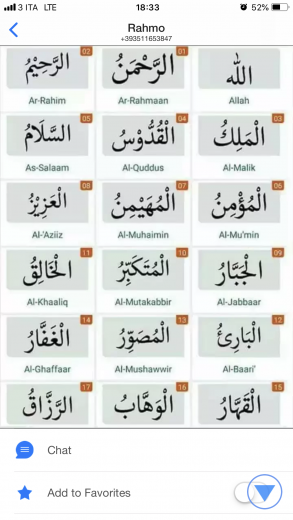 3 ITA LTE 18:33 52%
Rahmo
+393511653847
02 01
الرَّحِيْمُ الرَّحْمَنُ الله
Ar-Rahim Ar-Rahmaan Allah
05 04 03
السَّلَامُ الْقُدُّوْسُ الْمَلِكُ
As-Salaam Al-Quddus Al-Malik
08 07 06
الْعَزِيْزُ الْمُهَيْمِنُ الْمُؤْمِنُ
Al-'Aziiz Al-Muhaimin Al-Mu'min
11 10 09
الْخَالِقُ الْمُتَكَبِّرُ الْجَبَّارُ
Al-Khaaliq Al-Mutakabbir Al-Jabbaar
14 13 12
الْغَفَّارُ الْمُصَوِّرُ الْبَارِئُ
Al-Ghaffaar Al-Mushawwir Al-Baari'
17 16 15
الرَّزَّاقُ الْوَهَّابُ الْقَهَّارُ
Chat
Add to Favorites